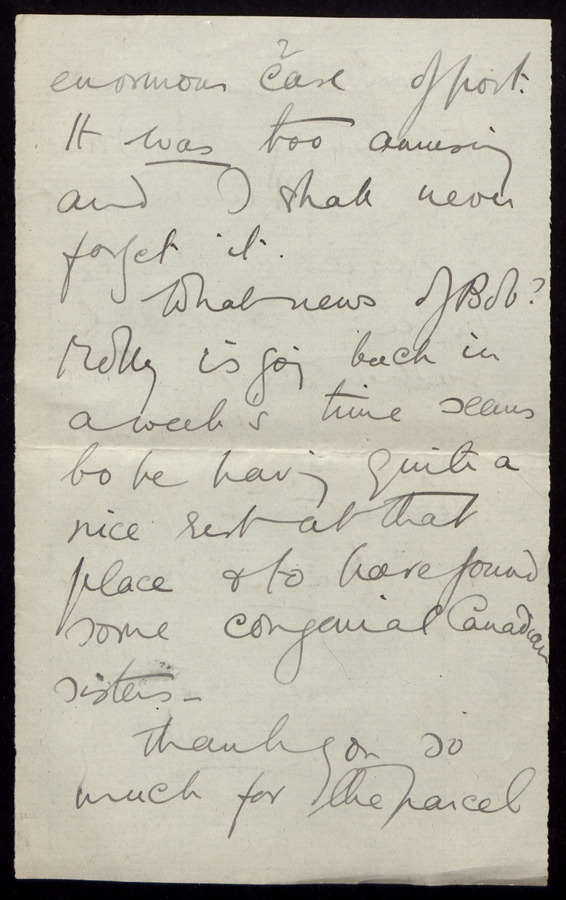 2
enormous case of port.
It was too amusing
and I shall never
forget it.
What news of Bob?
Molly is going back in
a week's time seems
to be having quite a
nice rest at that
place & to have found
some congenial Canadian
sisters -
Thank you so
much for the parcel